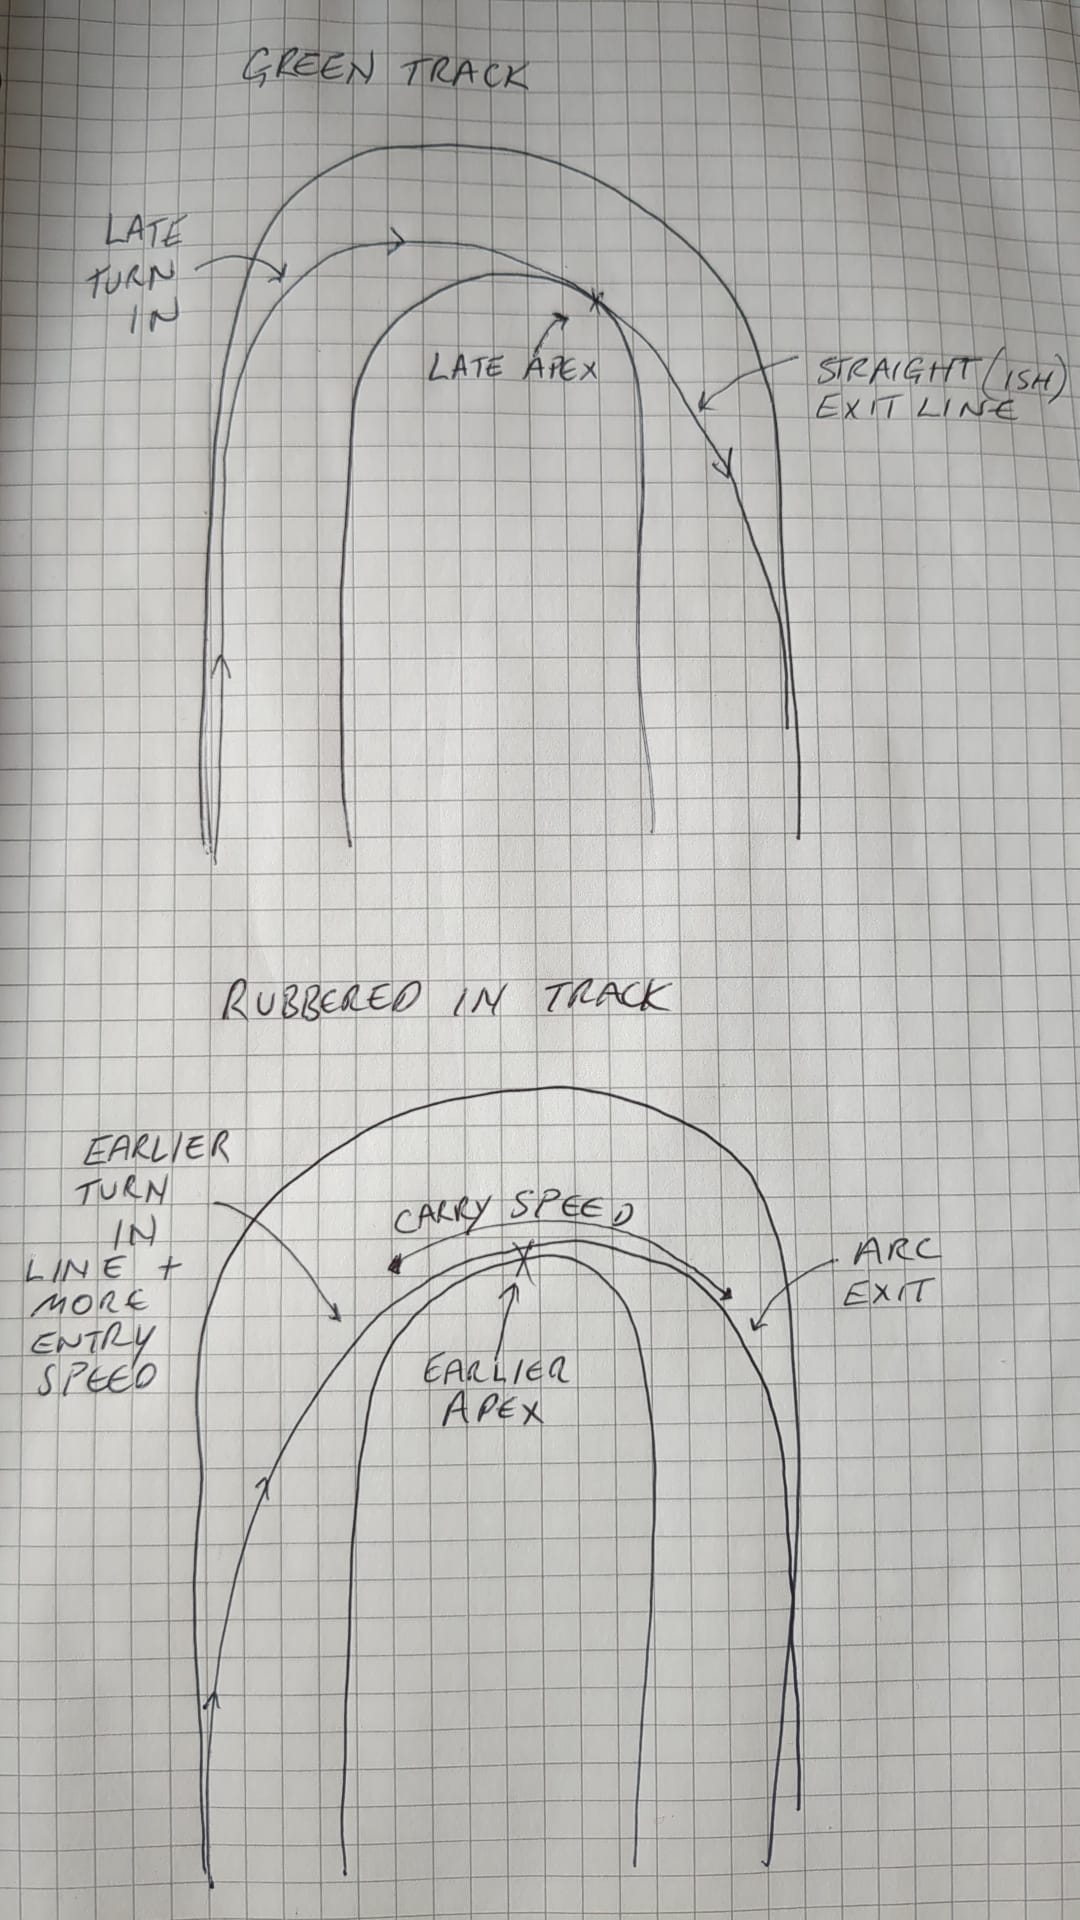 GREEN TRACK
LATE
TURN
IN
LATE APEX
STRAIGHT(ISH)
EXIT LINE
RUBBERED IN TRACK
EARLIER
TURN
IN
LINE +
MORE
ENTRY
SPEED
CARRY SPEED
ARC
EXIT
EARLIER
APEX